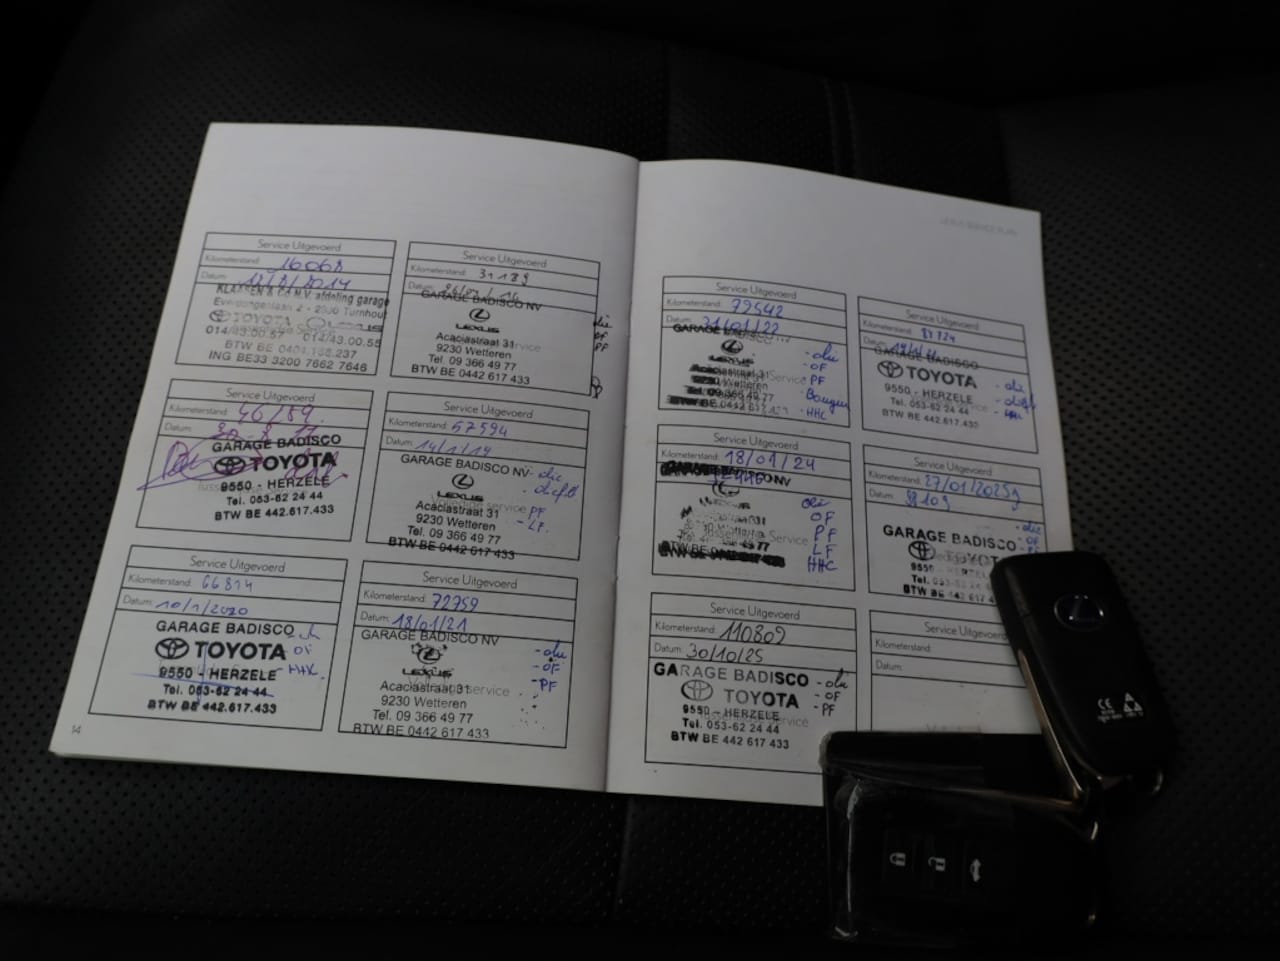 LEXUS SERVICE PLAN
Service Uitgevoerd
Kilometerstand: 16068
Datum: 12/8/2014
KLAASEN & Co N.V. afdeling garage
2 - 2300 Turnhout
TOYOTA LEXUS
014/43.00.57 014/43.00.55
BTW BE 0404.168.237
ING BE33 3200 7662 7646
Service Uitgevoerd
Kilometerstand: 31189
Datum:
GARAGE BADISCO NV
LEXUS
Acaciastraat 31
9230 Wetteren
Tel. 09 366 49 77
BTW BE 0442 617 433
olie
OF
PF
Service Uitgevoerd
Kilometerstand:
Datum:
GARAGE BADISCO
TOYOTA
9550 - HERZELE
Tel. 053-62 24 44
BTW BE 442.617.433
Service Uitgevoerd
Kilometerstand: 57594
Datum: 14/1/19
GARAGE BADISCO NV
LEXUS
Acaciastraat 31
9230 Wetteren
Tel. 09 366 49 77
BTW BE 0442 617 433
- olie
PF
- LF.
Service Uitgevoerd
Kilometerstand: 66814
Datum: 10/1/2020
GARAGE BADISCO
TOYOTA
9550 - HERZELE
Tel. 053-62 24 44
BTW BE 442.617.433
OF
Service Uitgevoerd
Kilometerstand: 72759
Datum: 18/01/21
GARAGE BADISCO NV
LEXUS
Acaciastraat 31
9230 Wetteren
Tel. 09 366 49 77
BTW BE 0442 617 433
- olie
- OF
- PF
14
Service Uitgevoerd
Kilometerstand: 79542
Datum: 31/01/22
GARAGE BADISCO NV
LEXUS
Acaciastraat 31
9230 Wetteren
Tel. 09 366 49 77
BTW BE 0442 617 433
- olie
- OF
PF
- Bougies
- HHC
Service Uitgevoerd
Kilometerstand:
Datum:
GARAGE BADISCO
TOYOTA
9550 - HERZELE
Tel. 053-62 24 44
BTW BE 442.617.433
- olie
Service Uitgevoerd
Kilometerstand: 18/01/24
Datum:
LEXUS
olie
OF
PF
LF
HHC
Service Uitgevoerd
Kilometerstand: 27/01/2025
Datum: 98109
GARAGE BADISCO
TOYOTA
9550 - HERZELE
Tel. 053-62 24
BTW BE 442.617.4
- olie
- OF
Service Uitgevoerd
Kilometerstand: 110809
Datum: 30/10/25
GARAGE BADISCO
TOYOTA
9550 - HERZELE
Tel. 053-62 24 44
BTW BE 442 617 433
- olie
- OF
- PF
Service Uitgevoerd
Kilometerstand:
Datum:
CE